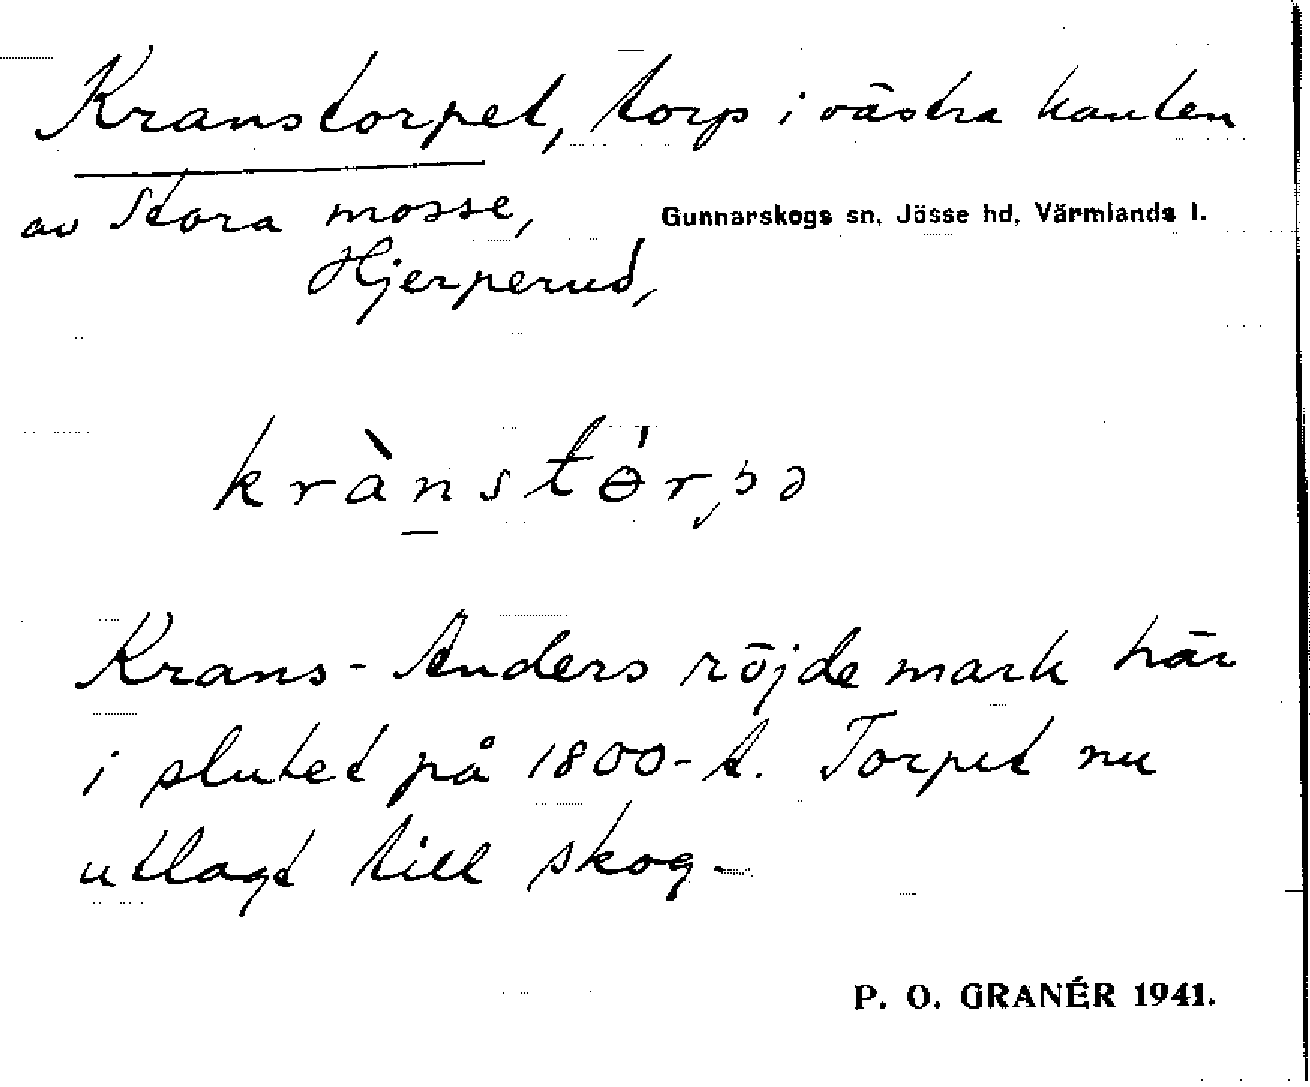 Kranstorpet, torp i västra kanten
av Stora mosse,
Gunnarskogs sn, Jösse hd, Värmlands l.
Hjerperud,
krànstɵ́rpə
Krans-Anders röjde mark här
i slutet på 1800-t. Torpet nu
utlagt till skog -
P. O. GRANÉR 1941.